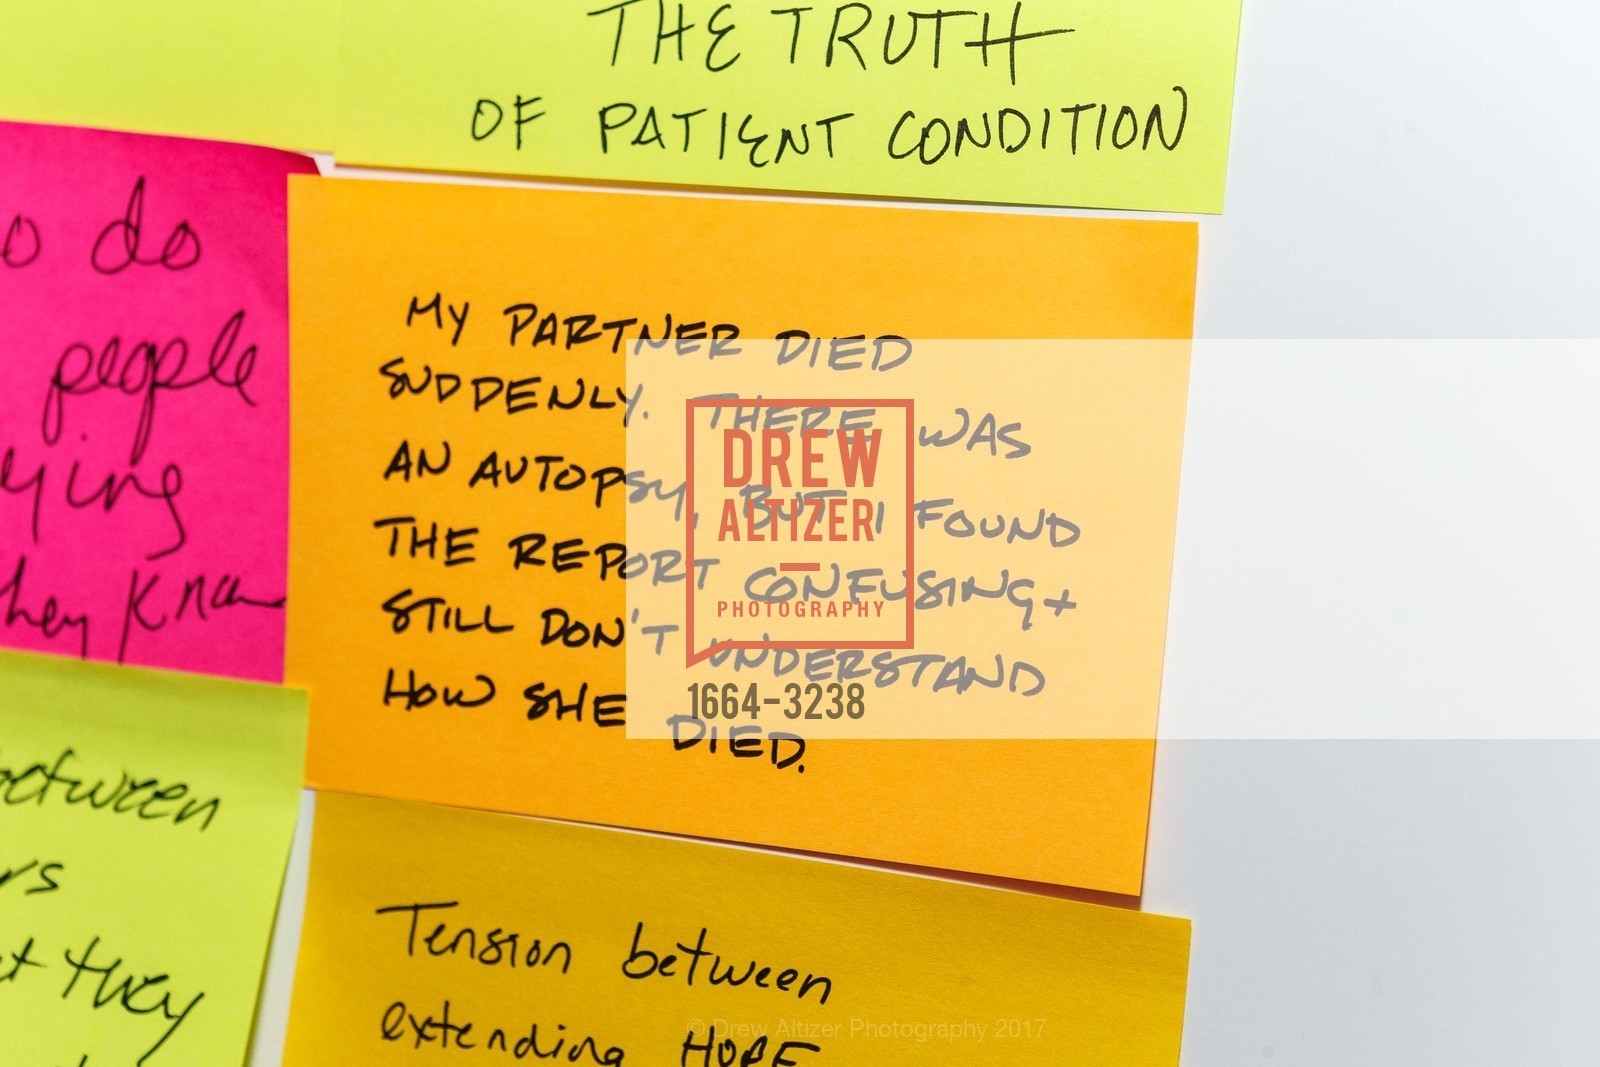 THE TRUTH
OF PATIENT CONDITION
do
people
they know
MY PARTNER DIED
SUDDENLY. THERE WAS
AN AUTOPSY, BUT I FOUND
THE REPORT CONFUSING +
STILL DON'T UNDERSTAND
HOW SHE DIED.
between
they
Tension between
extending HOPE
DREW
ALTIZER
PHOTOGRAPHY
1664-3238
© Drew Altizer Photography 2017